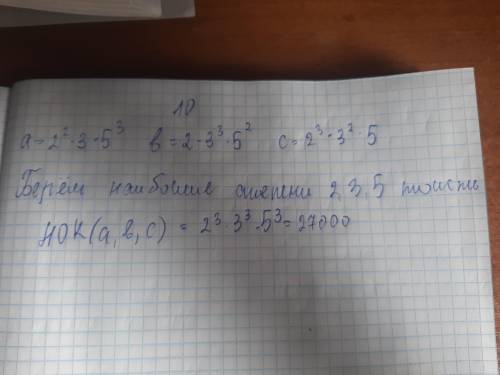 10
a = 2² · 3 · 5³ в = 2 · 3³ · 5² c = 2³ · 3² · 5
Берём наибольшие степени 2, 3, 5 то есть
НОК(a, в, c) = 2³ · 3³ · 5³ = 27000